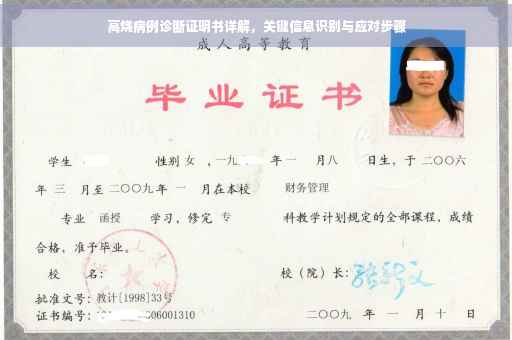 高烧病例诊断证明书详解,关键信息识别与应对步骤
成人高等教育
毕业证书
学生 性别 女 ,一九 年 一 月八 日生,于 二〇〇六
年 三 月至 二〇〇九 年 一 月在本校 财务管理
专业 函授 学习,修完 专 科教学计划规定的全部课程,成绩
合格,准予毕业。
校 名: 校(院)长:
批准文号:教计[1998]33号
证书编号: 06001310 二〇〇九 年 一 月 十 日